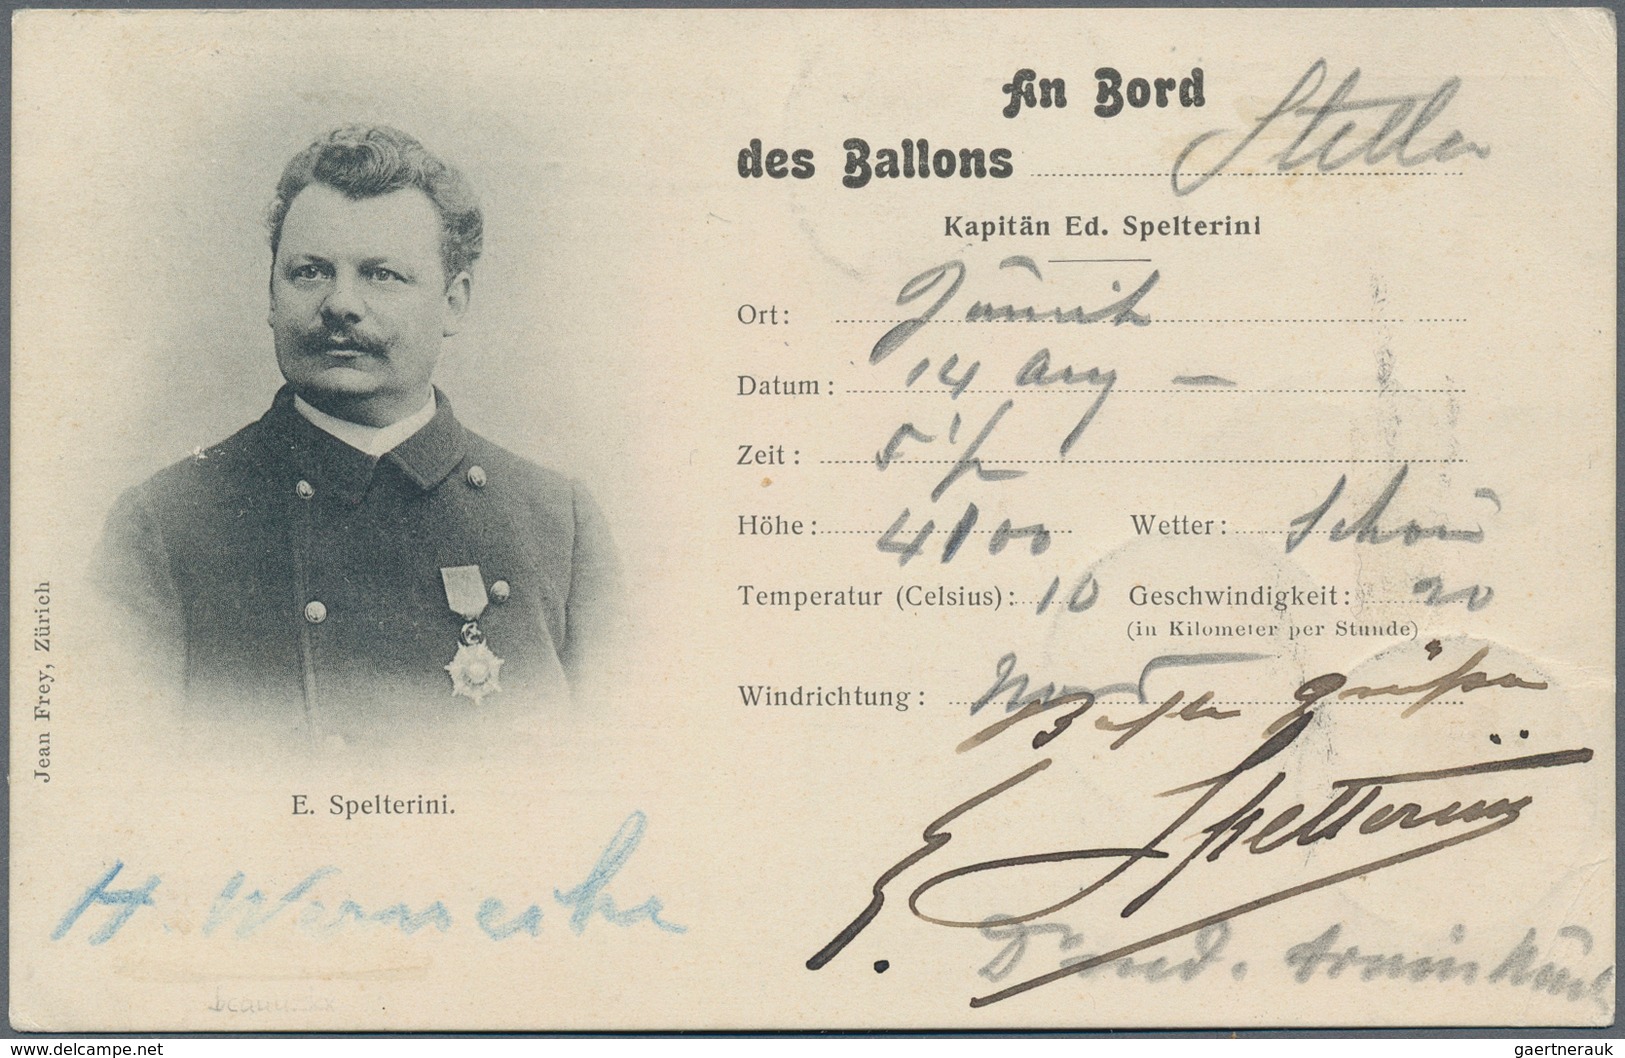 An Bord
des Ballons Stella
Kapitän Ed. Spelterini
Ort:
Datum: 14 Aug —
Zeit: 5 1/2
Höhe: 4100 Wetter: Schön
Temperatur (Celsius): 10 Geschwindigkeit: 20
(in Kilometer per Stunde)
Windrichtung: Nord
Beste Grüße
E. Spelterini
Dr med.
Jean Frey, Zürich
E. Spelterini.
H.
www.delcampe.net
gaertnerauk